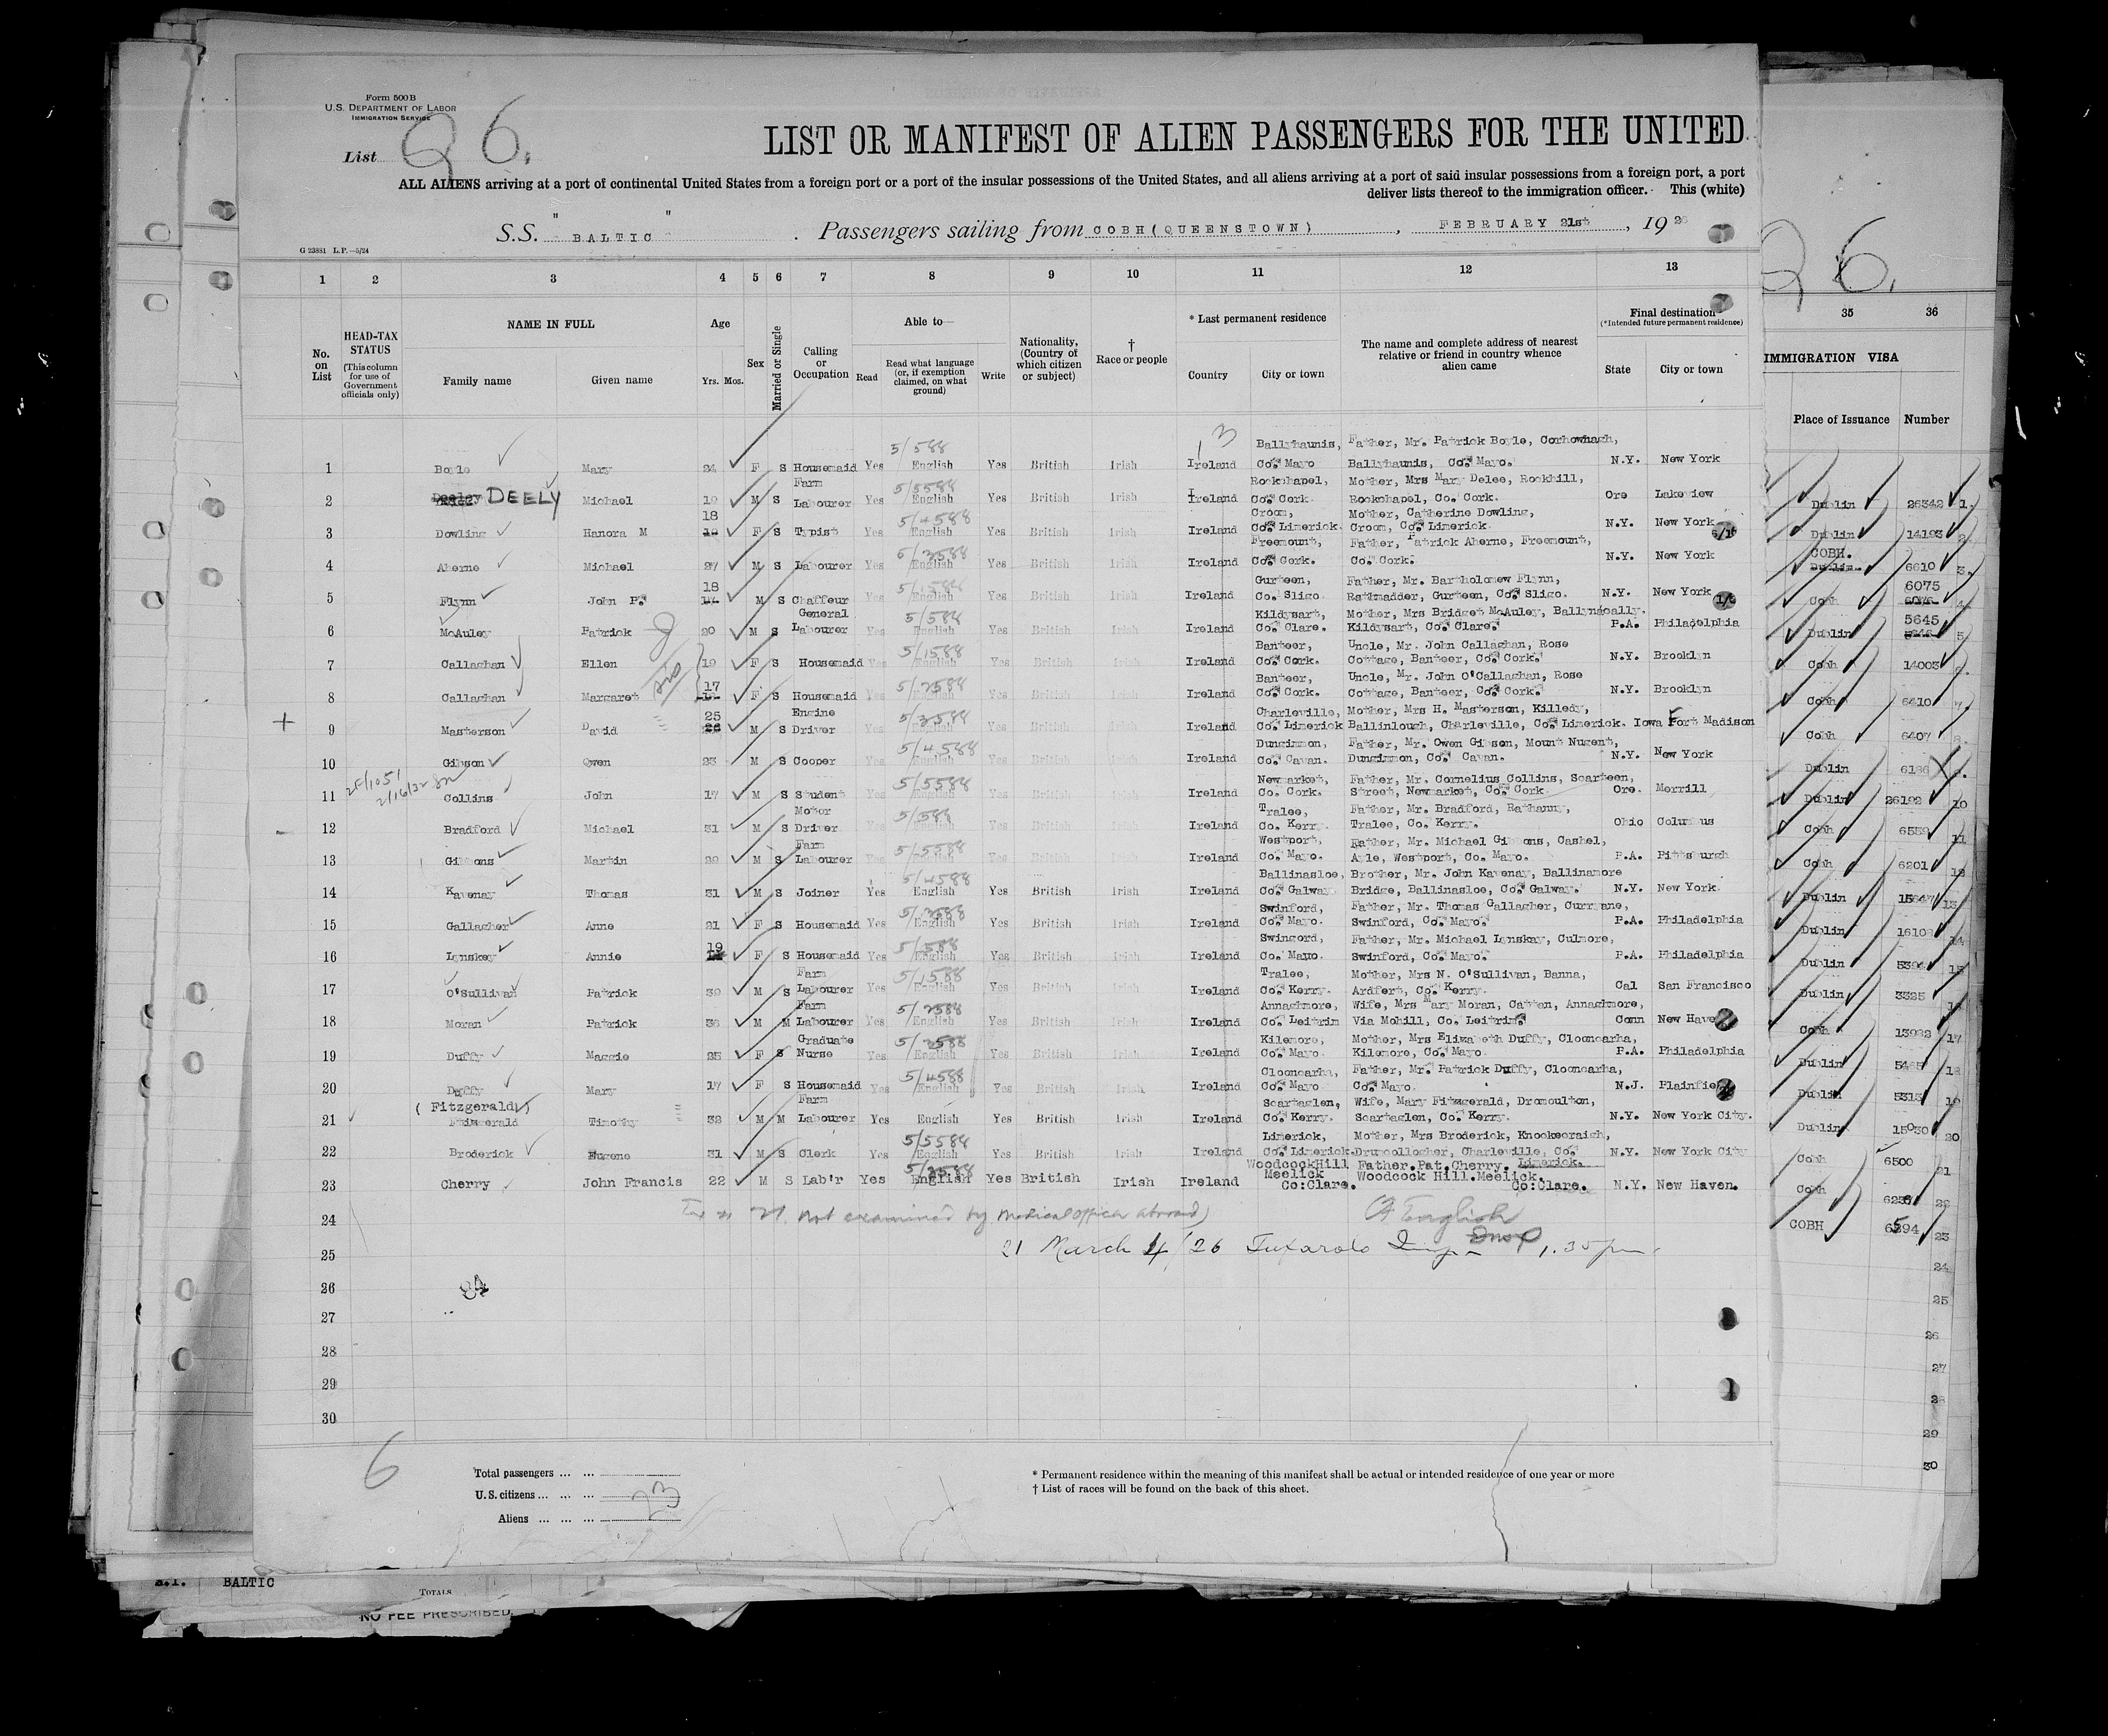 Form 500B
U.S. DEPARTMENT OF LABOR
IMMIGRATION SERVICE
List 26.
LIST OR MANIFEST OF ALIEN PASSENGERS FOR THE UNITED
ALL ALIENS arriving at a port of continental United States from a foreign port or a port of the insular possessions of the United States, and all aliens arriving at a port of said insular possessions from a foreign port, a port
deliver lists thereof to the immigration officer. This (white)
S.S. "BALTIC". Passengers sailing from COBH(QUEENSTOWN), FEBRUARY 21st, 1926
G 23881 L.P.—5/24
26.
1 2 3 4 5 6 7 8 9 10 11 12 13 35 36
No. on List
HEAD-TAX STATUS (This column for use of Government officials only)
NAME IN FULL
Family name Given name
Age
Yrs. Mos.
Sex
Married or Single
Calling or Occupation
Able to—
Read Read what language (or, if exemption claimed, on what ground) Write
Nationality, (Country of which citizen or subject)
† Race or people
* Last permanent residence
Country City or town
The name and complete address of nearest relative or friend in country whence alien came
Final destination
(*Intended future permanent residence)
State City or town
IMMIGRATION VISA
Place of Issuance Number
5/588 Ballyhaunis, Father, Mr. Patrick Boyle, Corhowhagh,
1 Boyle Mary 24 F S Housemaid Yes English Yes British Irish Ireland Co. Mayo Ballyhaunis, Co. Mayo. N.Y. New York
Farm 5/5588 Rockchapel, Mother, Mrs Mary Delee, Rockhill,
2 DEELY Michael 19 M S Labourer Yes English Yes British Irish Ireland Co. Cork Rockchapel, Co. Cork. Ore Lakeview Dublin 26342 1.
18 5/4588 Croom, Mother, Catherine Dowling,
3 Dowling Hanora M F S Typist Yes English Yes British Irish Ireland Co. Limerick. Croom, Co. Limerick. N.Y. New York Dublin 14193 2.
5/3588 Freemount, Father, Patrick Aherne, Freemount, COBH.
4 Aherne Michael 27 M S Labourer Yes English Yes British Irish Ireland Co. Cork. Co. Cork. N.Y. New York Dublin 6610 3.
18 5/1588 Gurteen, Father, Mr. Bartholomew Flynn, 6075
5 Flynn John P. 17 M S Chaffeur Yes English Yes British Irish Ireland Co. Sligo. Rathmadder, Gurteen, Co. Sligo. N.Y. New York Cobh 4.
General 5/588 Kildysart, Mother, Mrs Bridget McAuley, Ballyngcally. 5645
6 McAuley Patrick 20 M S Labourer Yes English Yes British Irish Ireland Co. Clare. Kildysart, Co. Clare. P.A. Philadelphia Dublin 5.
5/1588 Banteer, Uncle, Mr. John Callaghan, Rose
7 Callaghan Ellen 19 F S Housemaid Yes English Yes British Irish Ireland Co. Cork. Cottage, Banteer, Co. Cork. N.Y. Brooklyn Cobh 14003 6.
sis 17 5/2588 Banteer, Uncle, Mr. John O'Callaghan, Rose
8 Callaghan Margaret F S Housemaid Yes English Yes British Irish Ireland Co. Cork. Cottage, Banteer, Co. Cork. N.Y. Brooklyn Cobh 6410 7.
+ 25 Engine 5/3588 Charleville, Mother, Mrs H. Masterson, Killedy,
9 Masterson David 26 M S Driver Yes English Yes British Irish Ireland Co. Limerick Ballinlough, Charleville, Co. Limerick. Iowa Fort Madison Cobh 6407 8.
5/4588 Dungimmon, Father, Mr. Owen Gibson, Mount Nugent,
10 Gibson Owen 23 M S Cooper Yes English Yes British Irish Ireland Co. Cavan. Dungimmon, Co. Cavan. N.Y. New York Dublin 6186 9.
2/16/32 5/5588 Newmarket, Father, Mr. Cornelius Collins, Scarteen,
11 Collins John 17 M S Student Yes English Yes British Irish Ireland Co. Cork. Street, Newmarket, Co. Cork Ore. Merrill Dublin 26192 10
Motor 5/588 Tralee, Father, Mr. Bradford, Rathanny,
12 Bradford Michael 31 M S Driver Yes English Yes British Irish Ireland Co. Kerry. Tralee, Co. Kerry. Ohio Columbus Cobh 6559 11
Farm 5/5588 Westport, Father, Mr. Michael Gibbons, Cashel,
13 Gibbons Martin 29 M S Labourer Yes English Yes British Irish Ireland Co. Mayo. Ayle, Westport, Co. Mayo. P.A. Pittsburgh Cobh 6201 12
5/4588 Ballinasloe, Brother, Mr. John Kavenay, Ballinamore
14 Kavenay Thomas 31 M S Joiner Yes English Yes British Irish Ireland Co. Galway. Bridge, Ballinasloe, Co. Galway. N.Y. New York Dublin 15847 13.
5/3588 Swinford, Father, Mr. Thomas Gallagher, Curryane,
15 Gallagher Anne 21 F S Housemaid Yes English Yes British Irish Ireland Co. Mayo. Swinford, Co. Mayo. P.A. Philadelphia Dublin 16108 14
19 5/588 Swingord, Father, Mr. Michael Lynskey, Culmore,
16 Lynskey Annie F S Housemaid Yes English Yes British Irish Ireland Co. Mayo. Swinford, Co. Mayo. P.A. Philadelphia Dublin 5394 15
Farm 5/1588 Tralee, Mother, Mrs N. O'Sullivan, Banna,
17 O'Sullivan Patrick 39 M S Labourer Yes English Yes British Irish Ireland Co. Kerry. Ardfert, Co. Kerry. Cal San Francisco Dublin 3325 16
Farm 5/2588 Annaghmore, Wife, Mrs Mary Moran, Catten, Annaghmore,
18 Moran Patrick 36 M M Labourer Yes English Yes British Irish Ireland Co. Leitrim Via Mohill, Co. Leitrim. Conn New Haven Cobh 13982 17
Graduate 5/3588 Kilemore, Mother, Mrs Elizabeth Duffy, Clooncarha,
19 Duffy Maggie 25 F S Nurse Yes English Yes British Irish Ireland Co. Mayo Kilemore, Co. Mayo. P.A. Philadelphia Dublin 5465 18
5/4588 Clooncarha, Father, Mr. Patrick Duffy, Clooncarha,
20 Duffy Mary 17 F S Housemaid Yes English Yes British Irish Ireland Co. Mayo Co. Mayo. N.J. Plainfield Dublin 5313 19
( Fitzgerald ) Farm Scartaglen, Wife, Mary Fitzgerald, Dromoulton,
21 Timothy 32 M M Labourer Yes English Yes British Irish Ireland Co. Kerry. Scartaglen, Co. Kerry. N.Y. New York City. Dublin 15030 20
5/5588 Limerick, Mother, Mrs Broderick, Knockcoraigh,
22 Broderick Eugene 31 M S Clerk Yes English Yes British Irish Ireland Co. Limerick. Drumcollogher, Charleville, Co. Limerick. N.Y. New York City Cobh 6500 21
5/2588 WoodcockHill Father.Pat.Cherry.
23 Cherry John Francis 22 M S Lab'r Yes English Yes British Irish Ireland Meelick Co:Clare. Woodcock Hill.Meelick. Co:Clare. N.Y. New Haven. Cobh 22
24 not examined by medical officer abroad) English COBH 6594 23
25 21 March 4/26 Insp 1.35pm 24
26 84 25
27 26
28 27
29 28
30 29
30
6
Total passengers ... ...
U.S. citizens ... ... ... 23
Aliens ... ... ...
* Permanent residence within the meaning of this manifest shall be actual or intended residence of one year or more
† List of races will be found on the back of this sheet.
BALTIC
TOTALS
NO FEE PRESCRIBED.